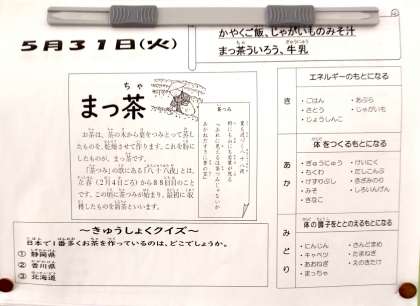 5月31日(火)
かやくご飯、じゃがいものみそ汁
まっ茶ういろう、牛乳
まっ茶
お茶は、茶の木から葉をつみとって蒸し
たものを、乾燥させて作ります。これを粉に
したものが、まっ茶です。
「茶つみ」の歌にある「八十八夜」とは、
立春(2月4日ごろ)から88日目のこと
です。この頃に茶つみが始まり、最初に収
穫したものを新茶といいます。
茶つみ
夏も近づく八十八夜
野にも山にも若葉が茂る
〜きゅうしょくクイズ〜
日本で1番多くお茶を作っているのは、どこでしょうか。
① 静岡県
② 香川県
③ 北海道
エネルギーのもとになる
き
・ごはん ・あぶら
・さとう ・じゃがいも
・じょうしんこ
体をつくるもとになる
あか
・ぎゅうにゅう ・けいにく
・ちくわ ・だしこんぶ
・けずりぶし ・あかみそ
・みそ ・しろいんげん
・きなこ
体の調子をととのえるもとになる
みどり
・にんじん ・さんどまめ
・キャベツ ・たまねぎ
・あおねぎ ・えのきたけ
・まっちゃ